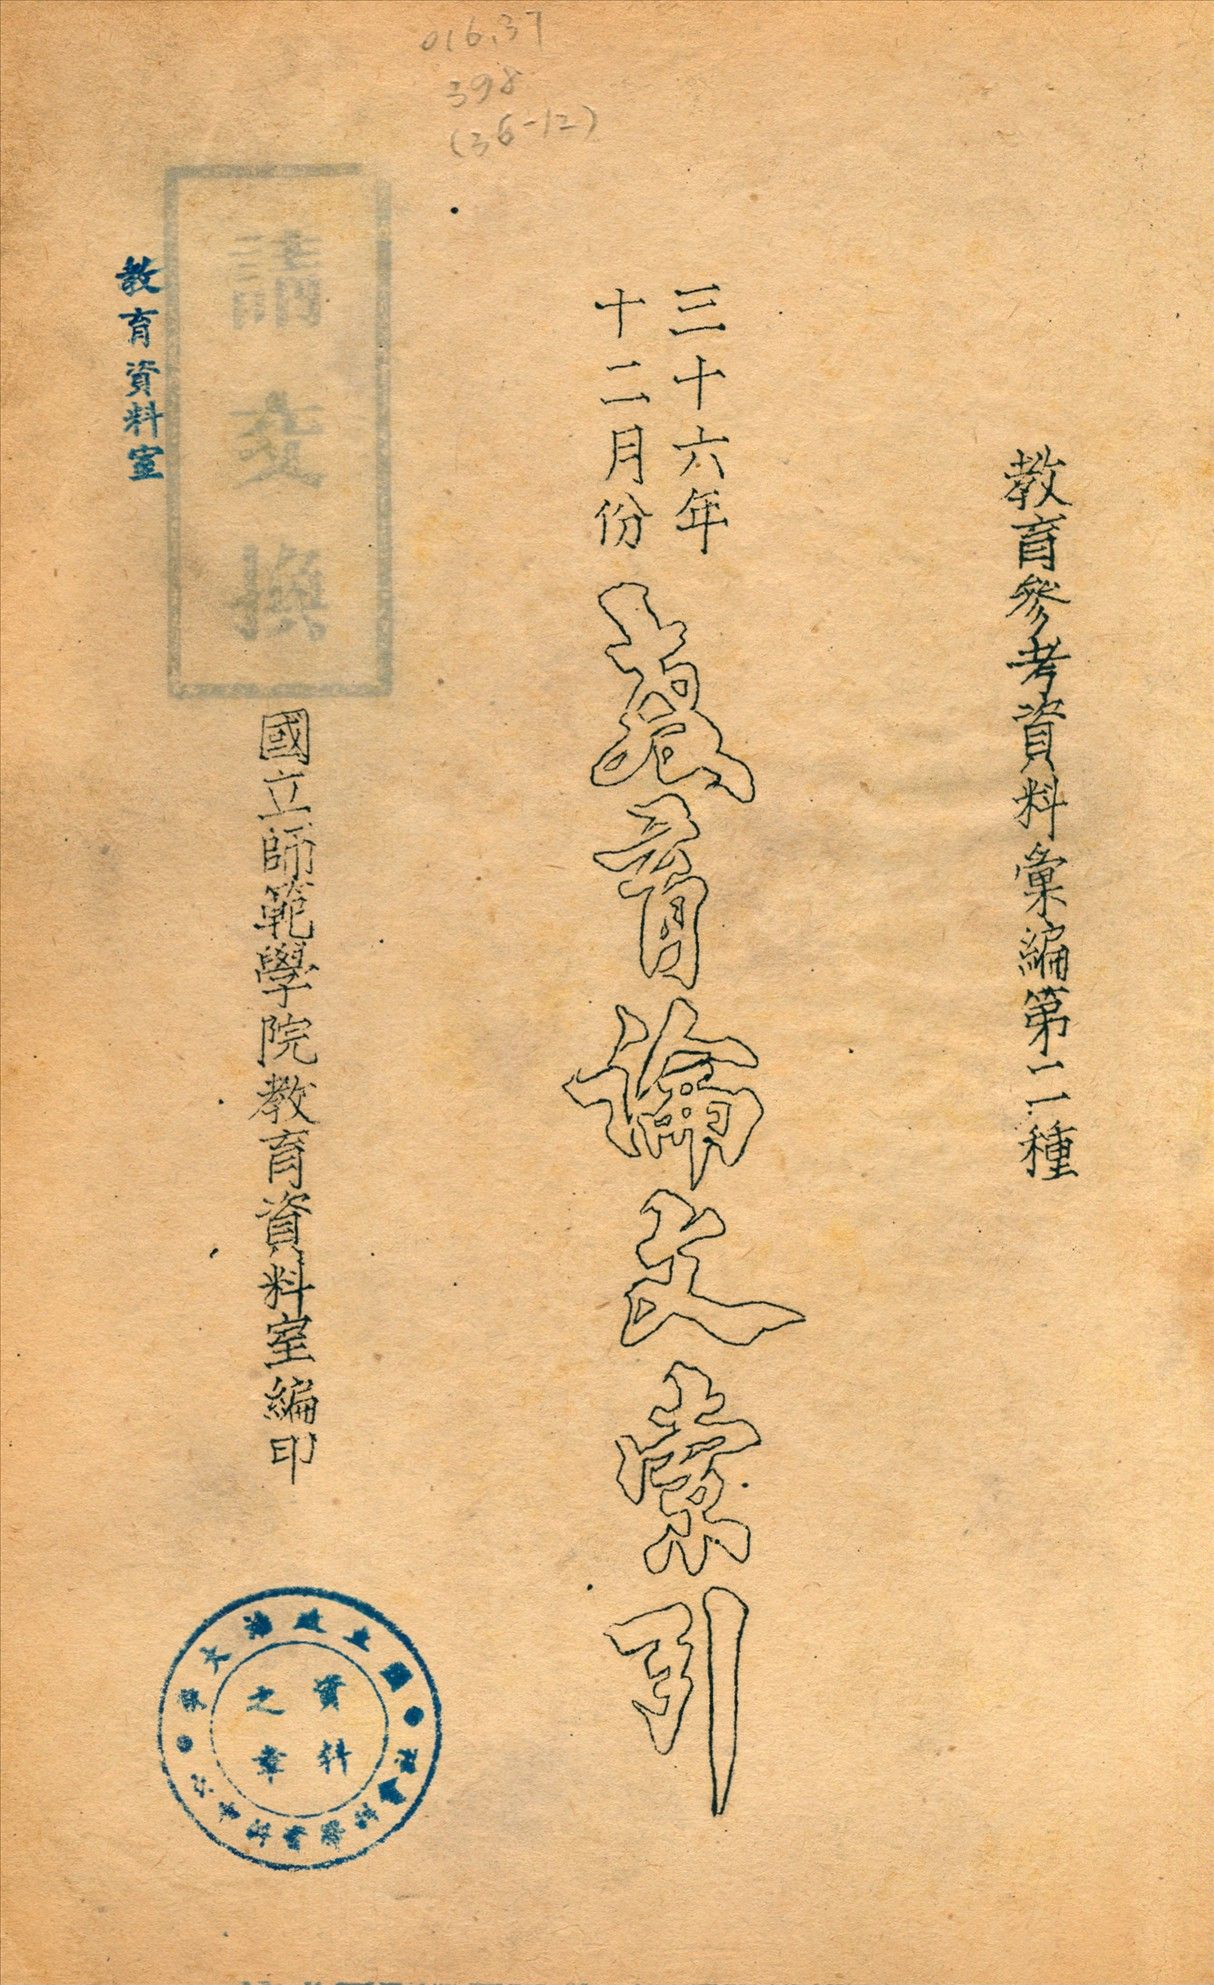 016.37
398
(36-12)
教育參考資料彙編第二種
三十六年
十二月份
教育論文索引
國立師範學院教育資料室編印
請交換
教育資料室
國立政治大學
資料
之章